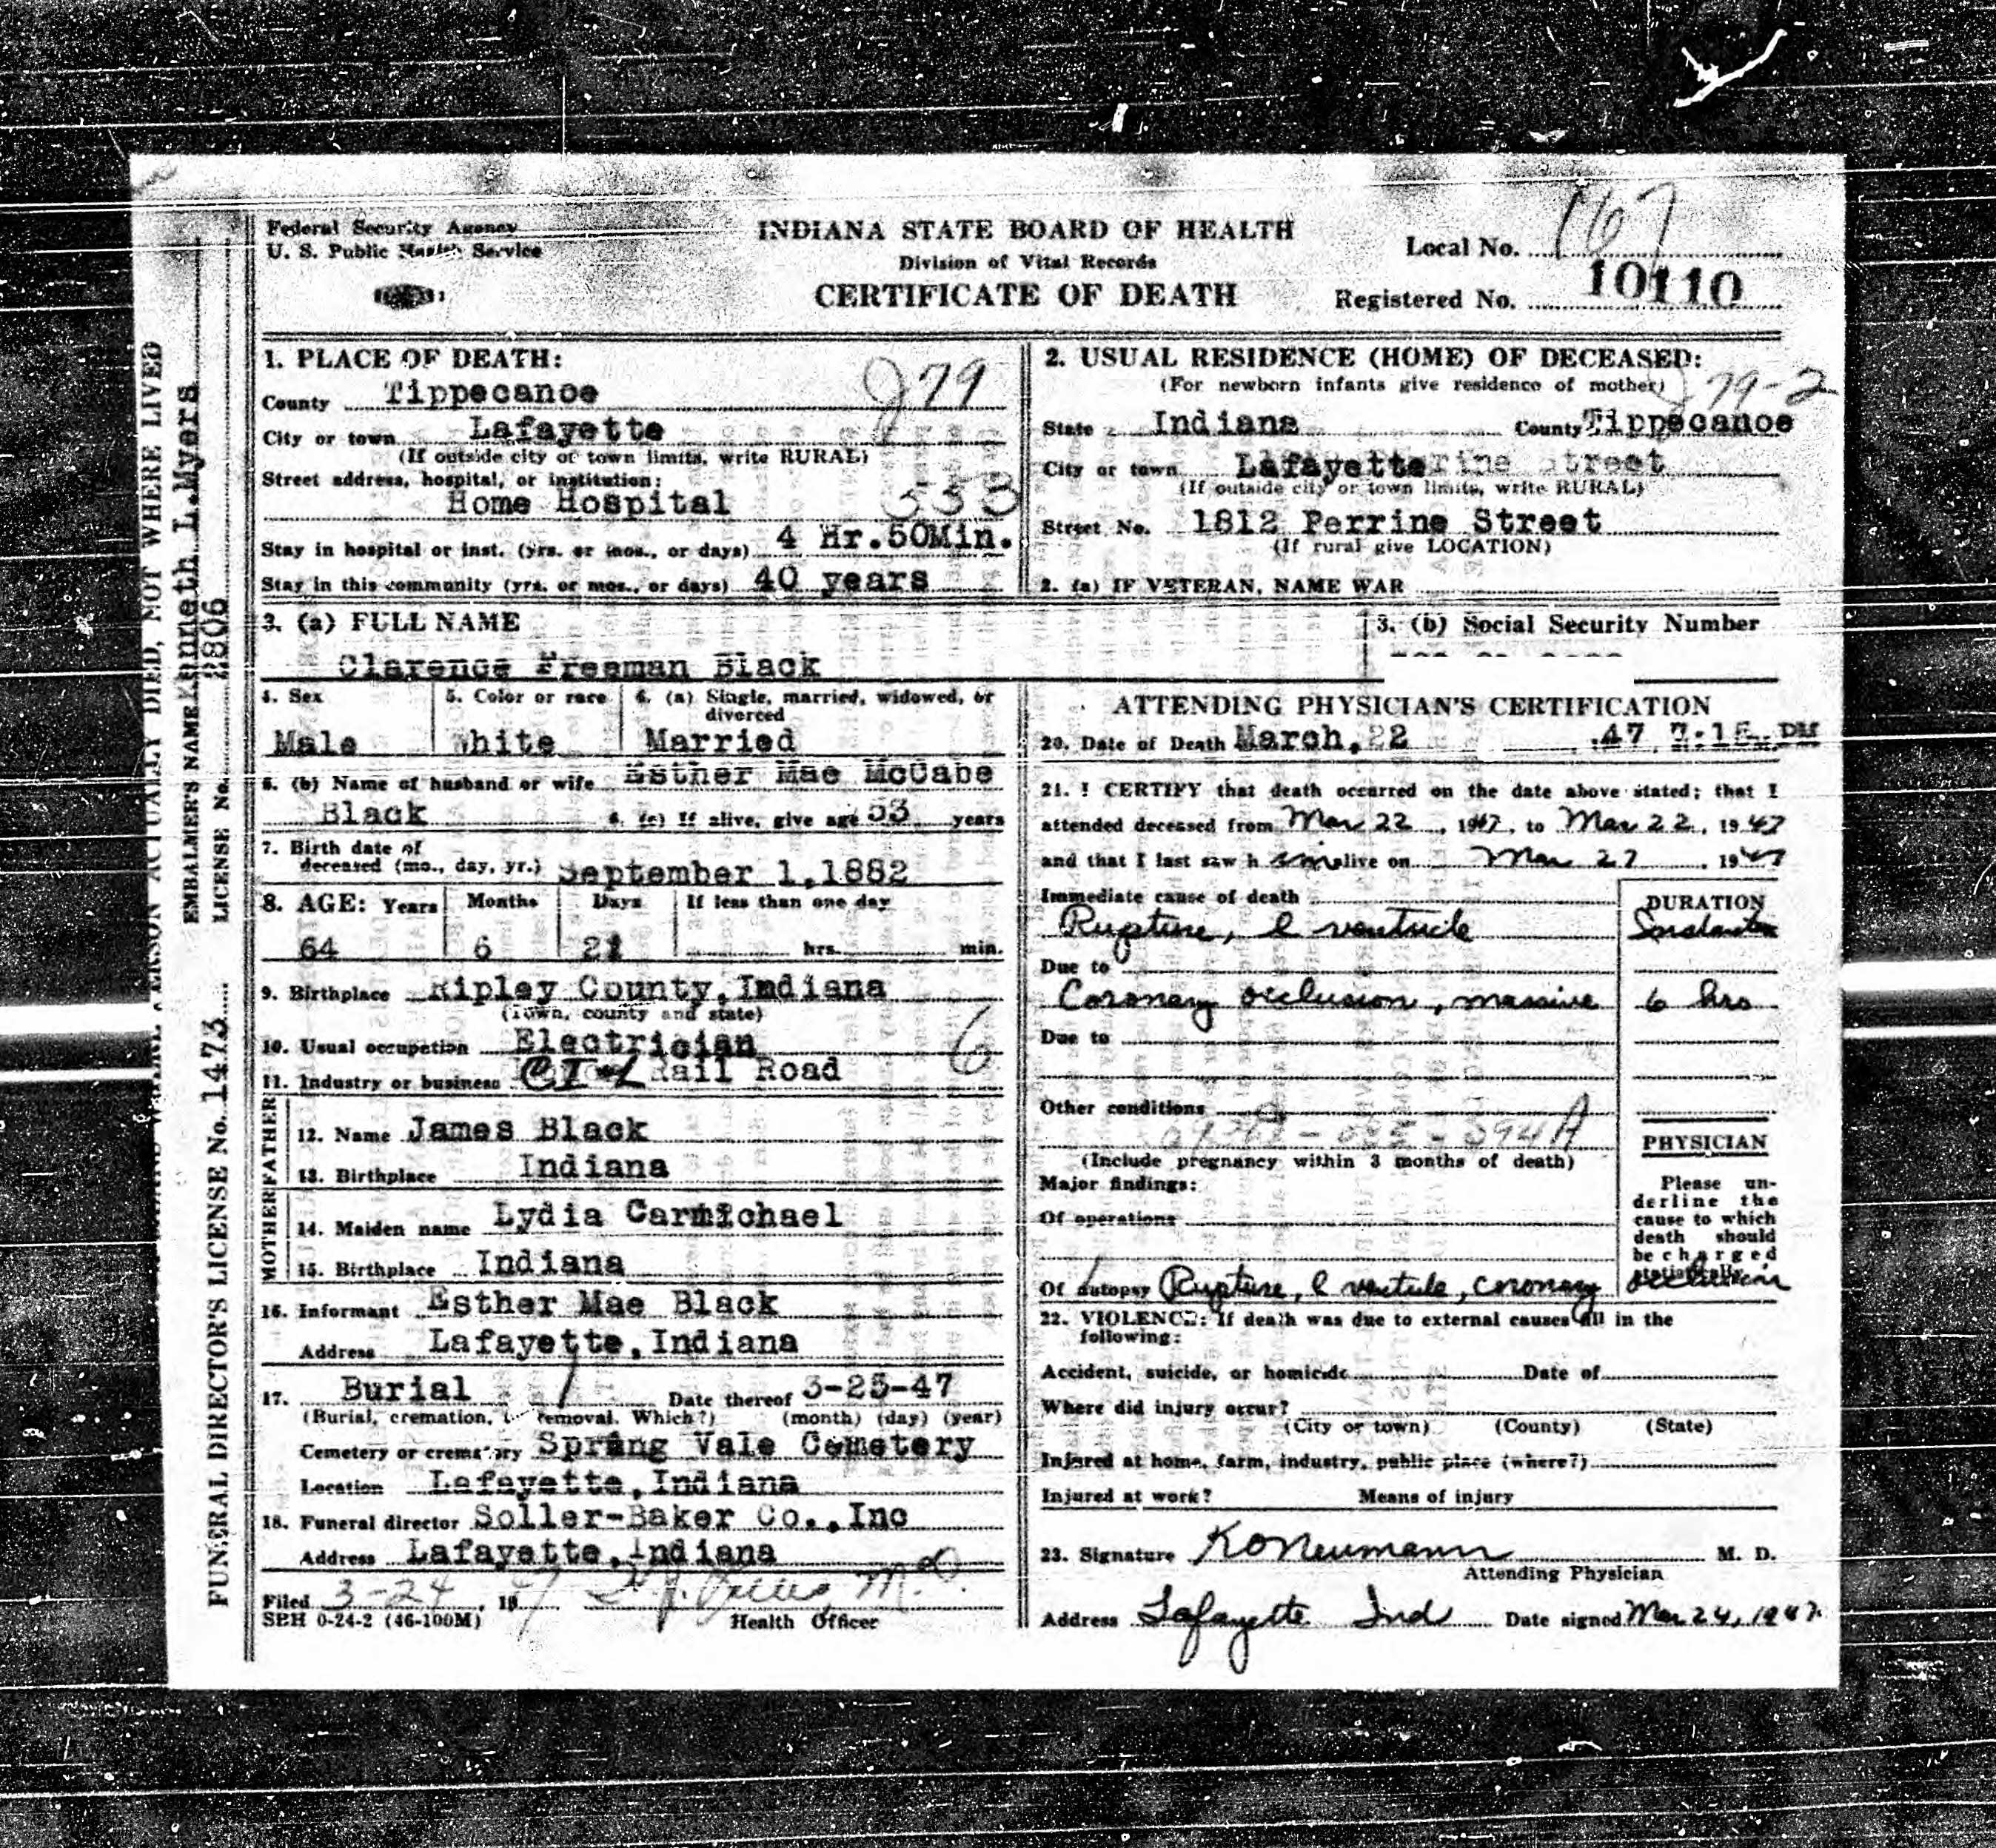 Federal Security Agency
U. S. Public Health Service
INDIANA STATE BOARD OF HEALTH
Division of Vital Records
CERTIFICATE OF DEATH
Local No. 167
Registered No. 10110
1. PLACE OF DEATH:
J79
County Tippecanoe
City or town Lafayette
(If outside city or town limits, write RURAL)
Street address, hospital, or institution:
Home Hospital 333
Stay in hospital or inst. (yrs. or mos., or days) 4 Hr.50Min.
Stay in this community (yrs. or mos., or days) 40 years
2. USUAL RESIDENCE (HOME) OF DECEASED:
(For newborn infants give residence of mother) 79-2
State Indiana County Tippecanoe
City or town Lafayette
(If outside city or town limits, write RURAL)
Street No. 1812 Perrine Street
(If rural give LOCATION)
2. (a) IF VETERAN, NAME WAR
3. (a) FULL NAME
Clarence Freeman Black
3. (b) Social Security Number
4. Sex
Male
5. Color or race
White
6. (a) Single, married, widowed, or
divorced
Married
6. (b) Name of husband or wife Esther Mae McCabe
Black 6. (c) If alive, give age 53 years
7. Birth date of
deceased (mo., day, yr.) September 1,1882
8. AGE: Years Months Days If less than one day
64 6 21 hrs. min.
9. Birthplace Ripley County, Indiana
(Town, county and state)
10. Usual occupation Electrician 6
11. Industry or business C I & L Rail Road
FATHER
12. Name James Black
13. Birthplace Indiana
MOTHER
14. Maiden name Lydia Carmichael
15. Birthplace Indiana
16. Informant Esther Mae Black
Address Lafayette, Indiana
17. Burial Date thereof 3-25-47
(Burial, cremation, or removal. Which?) (month) (day) (year)
Cemetery or crematory Spring Vale Cemetery
Location Lafayette, Indiana
18. Funeral director Soller-Baker Co., Inc
Address Lafayette, Indiana
Filed 3-24, 1947 M.D.
SBH 0-24-2 (46-100M) Health Officer
ATTENDING PHYSICIAN'S CERTIFICATION
20. Date of Death March, 22 47 7:15 PM
21. I CERTIFY that death occurred on the date above stated; that I
attended deceased from Mar 22, 1947, to Mar 22, 1947
and that I last saw h im alive on Mar 22, 1947
Immediate cause of death
DURATION
Rupture, l ventricle
Due to
Coronary occlusion, massive 6 hrs
Due to
Other conditions
(Include pregnancy within 3 months of death)
Major findings:
Of operations
Of autopsy Rupture, l ventricle, coronary occlusion
PHYSICIAN
Please un-
derline the
cause to which
death should
be charged
statistically.
22. VIOLENCE: If death was due to external causes fill in the
following:
Accident, suicide, or homicide Date of
Where did injury occur?
(City or town) (County) (State)
Injured at home, farm, industry, public place (where?)
Injured at work? Means of injury
23. Signature K O Neumann M. D.
Attending Physician
Address Lafayette Ind Date signed Mar 24, 1947.
ACTUALLY DIED, NOT WHERE LIVED
EMBALMER'S NAME Kenneth L. Myers
LICENSE No. 2806
FUNERAL DIRECTOR'S LICENSE No. 1473